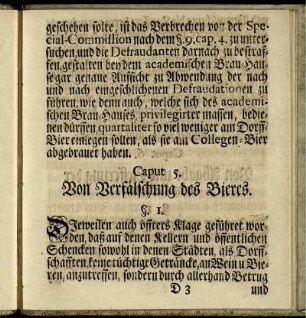 geschehen solte, ist das Verbrechen von der Spe-
cial-Commission nach dem §. 9. cap. 4. zu unter-
suchen und die Defraudanten darnach zu bestraf-
fen, gestalten bey dem academischen Brau-Hau-
se gar genaue Aufsicht zu Abwendung der nach
und nach eingeschlichenen Defraudationen zu
führen, wie denn auch, welche sich des academi-
schen Brau-Hauses, privilegirter massen, bedie-
nen dürffen, quartaliter so viel weniger am Dorff-
Bier einlegen sollen, als sie am Collegen-Bier
abgebrauet haben.
Caput 5.
Von Verfälschung des Bieres.
§. 1.
DJeweilen auch öffters Klage geführet wor-
den, daß auf denen Kellern und öffentlichen
Schencken sowohl in denen Städten, als Dorf-
schafften, keine tüchtige Geträncke, an Wein u. Bie-
ren, anzutreffen, sondern durch allerhand Betrug
D 3 und